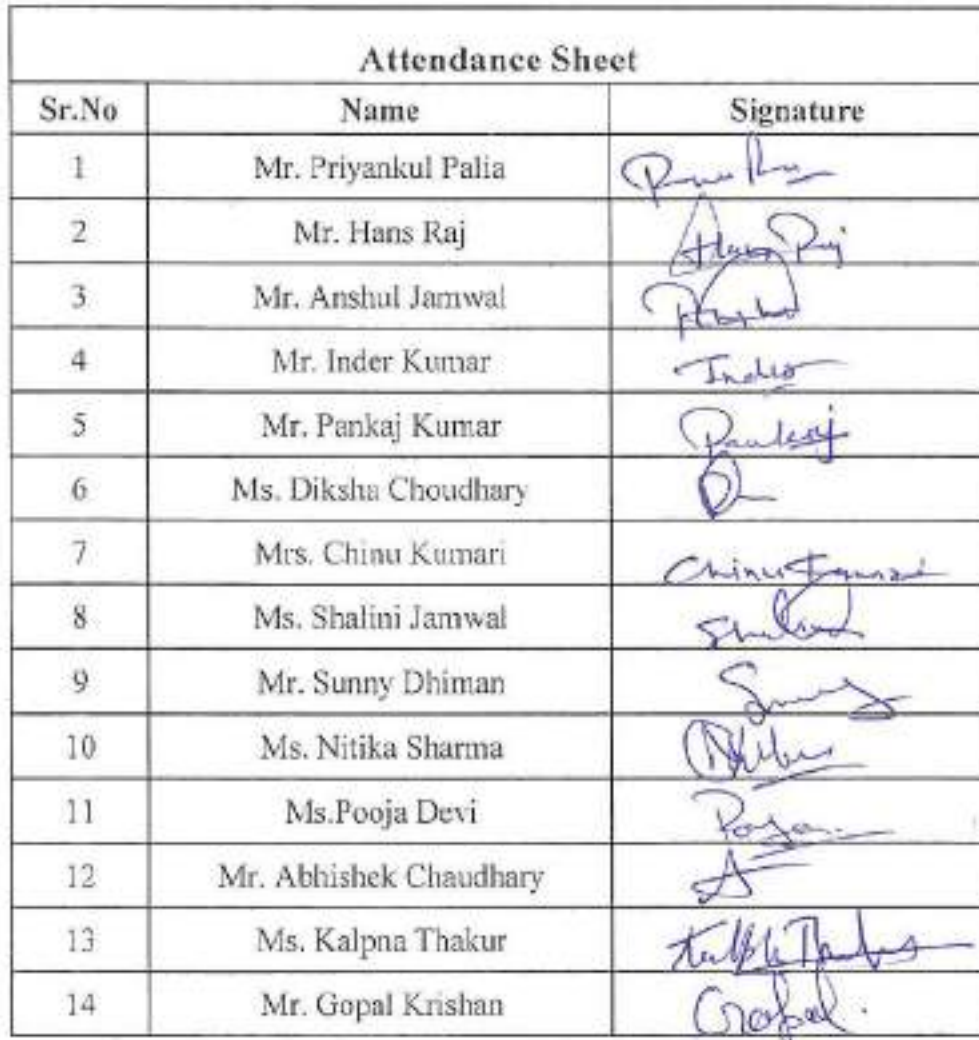 Attendance Sheet
Sr.No Name Signature
1 Mr. Priyankul Palia
2 Mr. Hans Raj Hans Raj
3 Mr. Anshul Jamwal
4 Mr. Inder Kumar Inder
5 Mr. Pankaj Kumar Pankaj
6 Ms. Diksha Choudhary
7 Mrs. Chinu Kumari Chinu Kumari
8 Ms. Shalini Jamwal
9 Mr. Sunny Dhiman Sunny
10 Ms. Nitika Sharma
11 Ms.Pooja Devi
12 Mr. Abhishek Chaudhary
13 Ms. Kalpna Thakur
14 Mr. Gopal Krishan Gopal